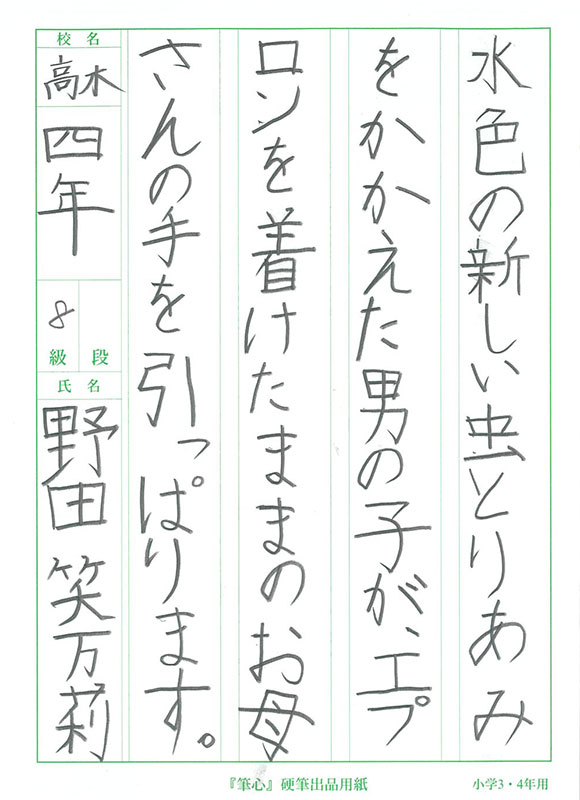 水色の新しい虫とりあみ
をかかえた男の子が、エプ
ロンを着けたままのお母
さんの手を引っぱります。
校名
高木
四年
8
級 段
氏名
野田 笑万莉
『筆心』硬筆出品用紙
小学3・4年用